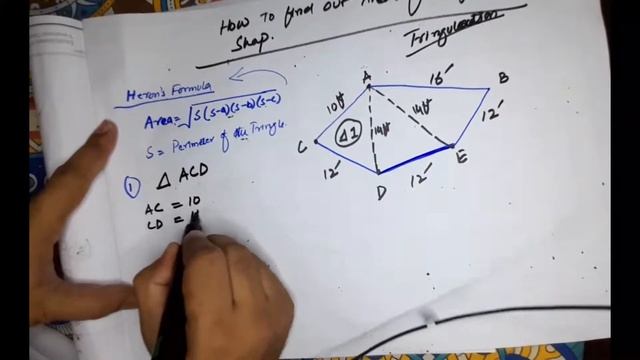 How to find out Area of
Shap.
Tringulation
Heron's Formula
Area = √S(S-a)(S-b)(S-c)
S = Perimeter of the Tringle.
① △ ACD
AC = 10
CD = 1
A
B
C
D
E
10ft
16'
12'
14ft
14ft
12'
12'
△1